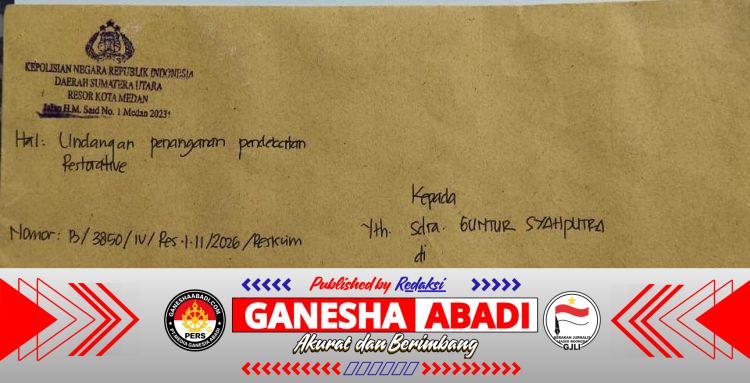 KEPOLISIAN NEGARA REPUBLIK INDONESIA
DAERAH SUMATERA UTARA
RESOR KOTA MEDAN
Jalan H.M. Said No. 1 Medan 2023
Hal: Undangan penanganan pendekatan
Restorative
Kepada
Nomor: B/3850/IV/Res.1.11/2026/Reskrim
Yth. Sdra. GUNTUR SYAHPUTRA
di
Published by Redaksi
GANESHA ABADI
Akurat dan Berimbang
GANESHAABADI.COM
PERS
PT. MEDIA GANESHA ABADI
GERAKAN JURNALIS
INDONESIA
GJLI